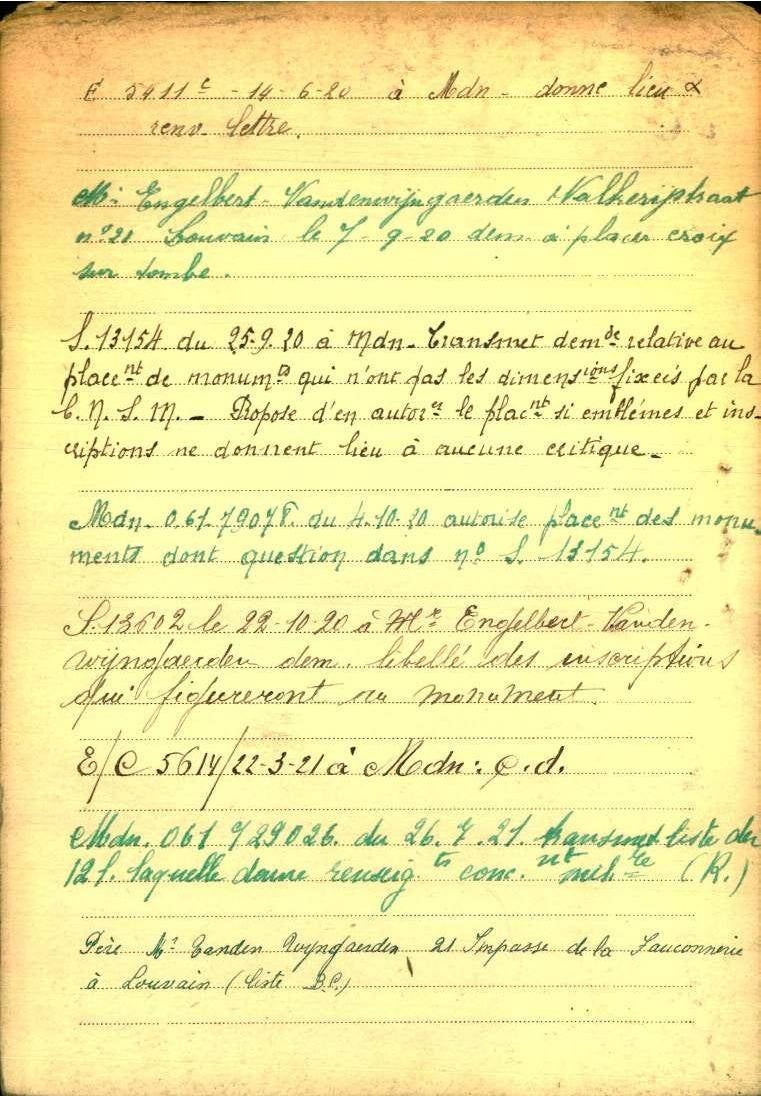 E 5411 c - 14-6-20 à Mdn - donne lieu à
renv. lettre.
Mr Engelbert-Vandenwijngaerden
n° 21 Louvain le 7-9-20 dem. à placer croix
sur tombe.
S. 13154 du 25.9.20 à Mdn. Transmet demde relative au
placent de monumts qui n'ont pas les dimensions fixées par la
C. N. S. M. - Propose d'en autorer le placnt si emblémes et ins-
criptions ne donnent lieu à aucune critique -
Mdn. 061.79078. du 4.10.20 autorise placent des monu-
ments dont question dans n° S. 13154.
S. 13602 le 22-10-20 à Mr Engelbert-Vanden-
wijngaerden dem. libellé des inscriptions
qui figureront au monument.
E/C 5614/22-3-21 à Mdn: c.d.
Mdn. 061 729026. du 26.7.21. transmet liste du
12 l. laquelle donne renseigts conc.nt milre (R.)
Père Mr Vanden Wyngaerden 21 Impasse de la Fauconnerie
à Louvain (liste B.C.)